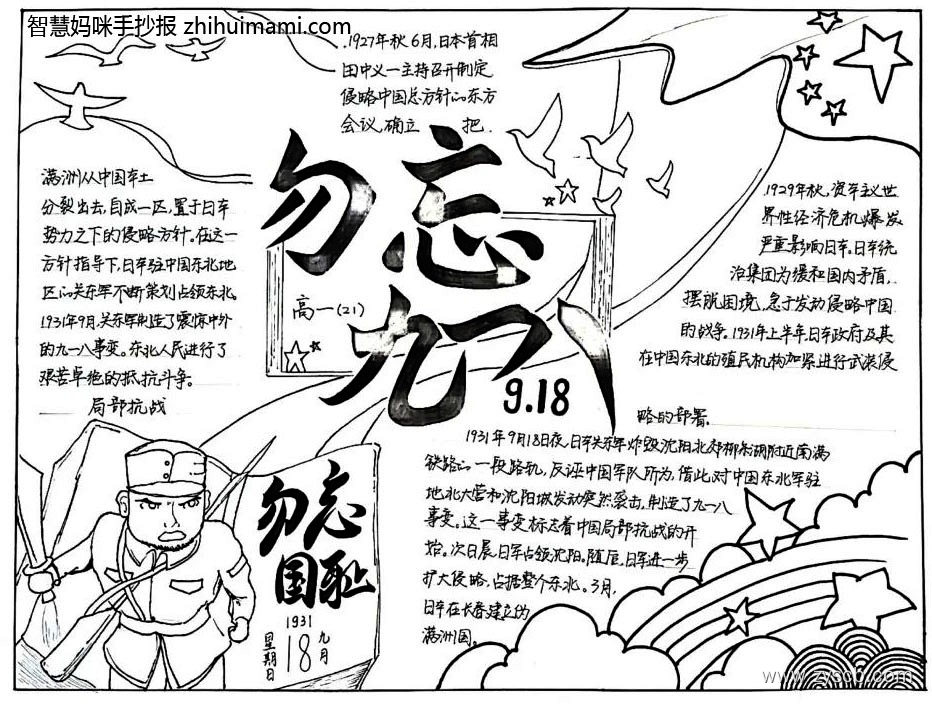 智慧妈咪手抄报 zhihuimami.com
1927年秋6月,日本首相
田中义一主持召开制定
侵略中国总方针的东方
会议,确立 把
满洲从中国本土
分裂出去,自成一区,置于日本
势力之下的侵略方针。在这一
方针指导下,日本驻中国东北地
区的关东军不断策划占领东北。
1931年9月,关东军制造了震惊中外
的九一八事变。东北人民进行了
艰苦卓绝的抵抗斗争。
局部抗战
勿忘
九一八
9.18
高一(21)
1929年秋,资本主义世
界性经济危机爆发
严重影响日本。日本统
治集团为缓和国内矛盾,
摆脱困境,急于发动侵略中国
的战争。1931年上半年日本政府及其
在中国东北的殖民机构加紧进行武装侵
略的部署。
1931年9月18日夜,日本关东军炸毁沈阳北郊柳条湖附近南满
铁路的一段路轨,反诬中国军队所为,借此对中国东北军驻
地北大营和沈阳城发动突然袭击,制造了九一八
事变。这一事变标志着中国局部抗战的开
始。次日晨日军占领沈阳。随后,日军进一步
扩大侵略,占据整个东北。3月,
日本在长春建立的
满洲国。
勿忘
国耻
1931
九月
18
星期日
www.zyscb.com